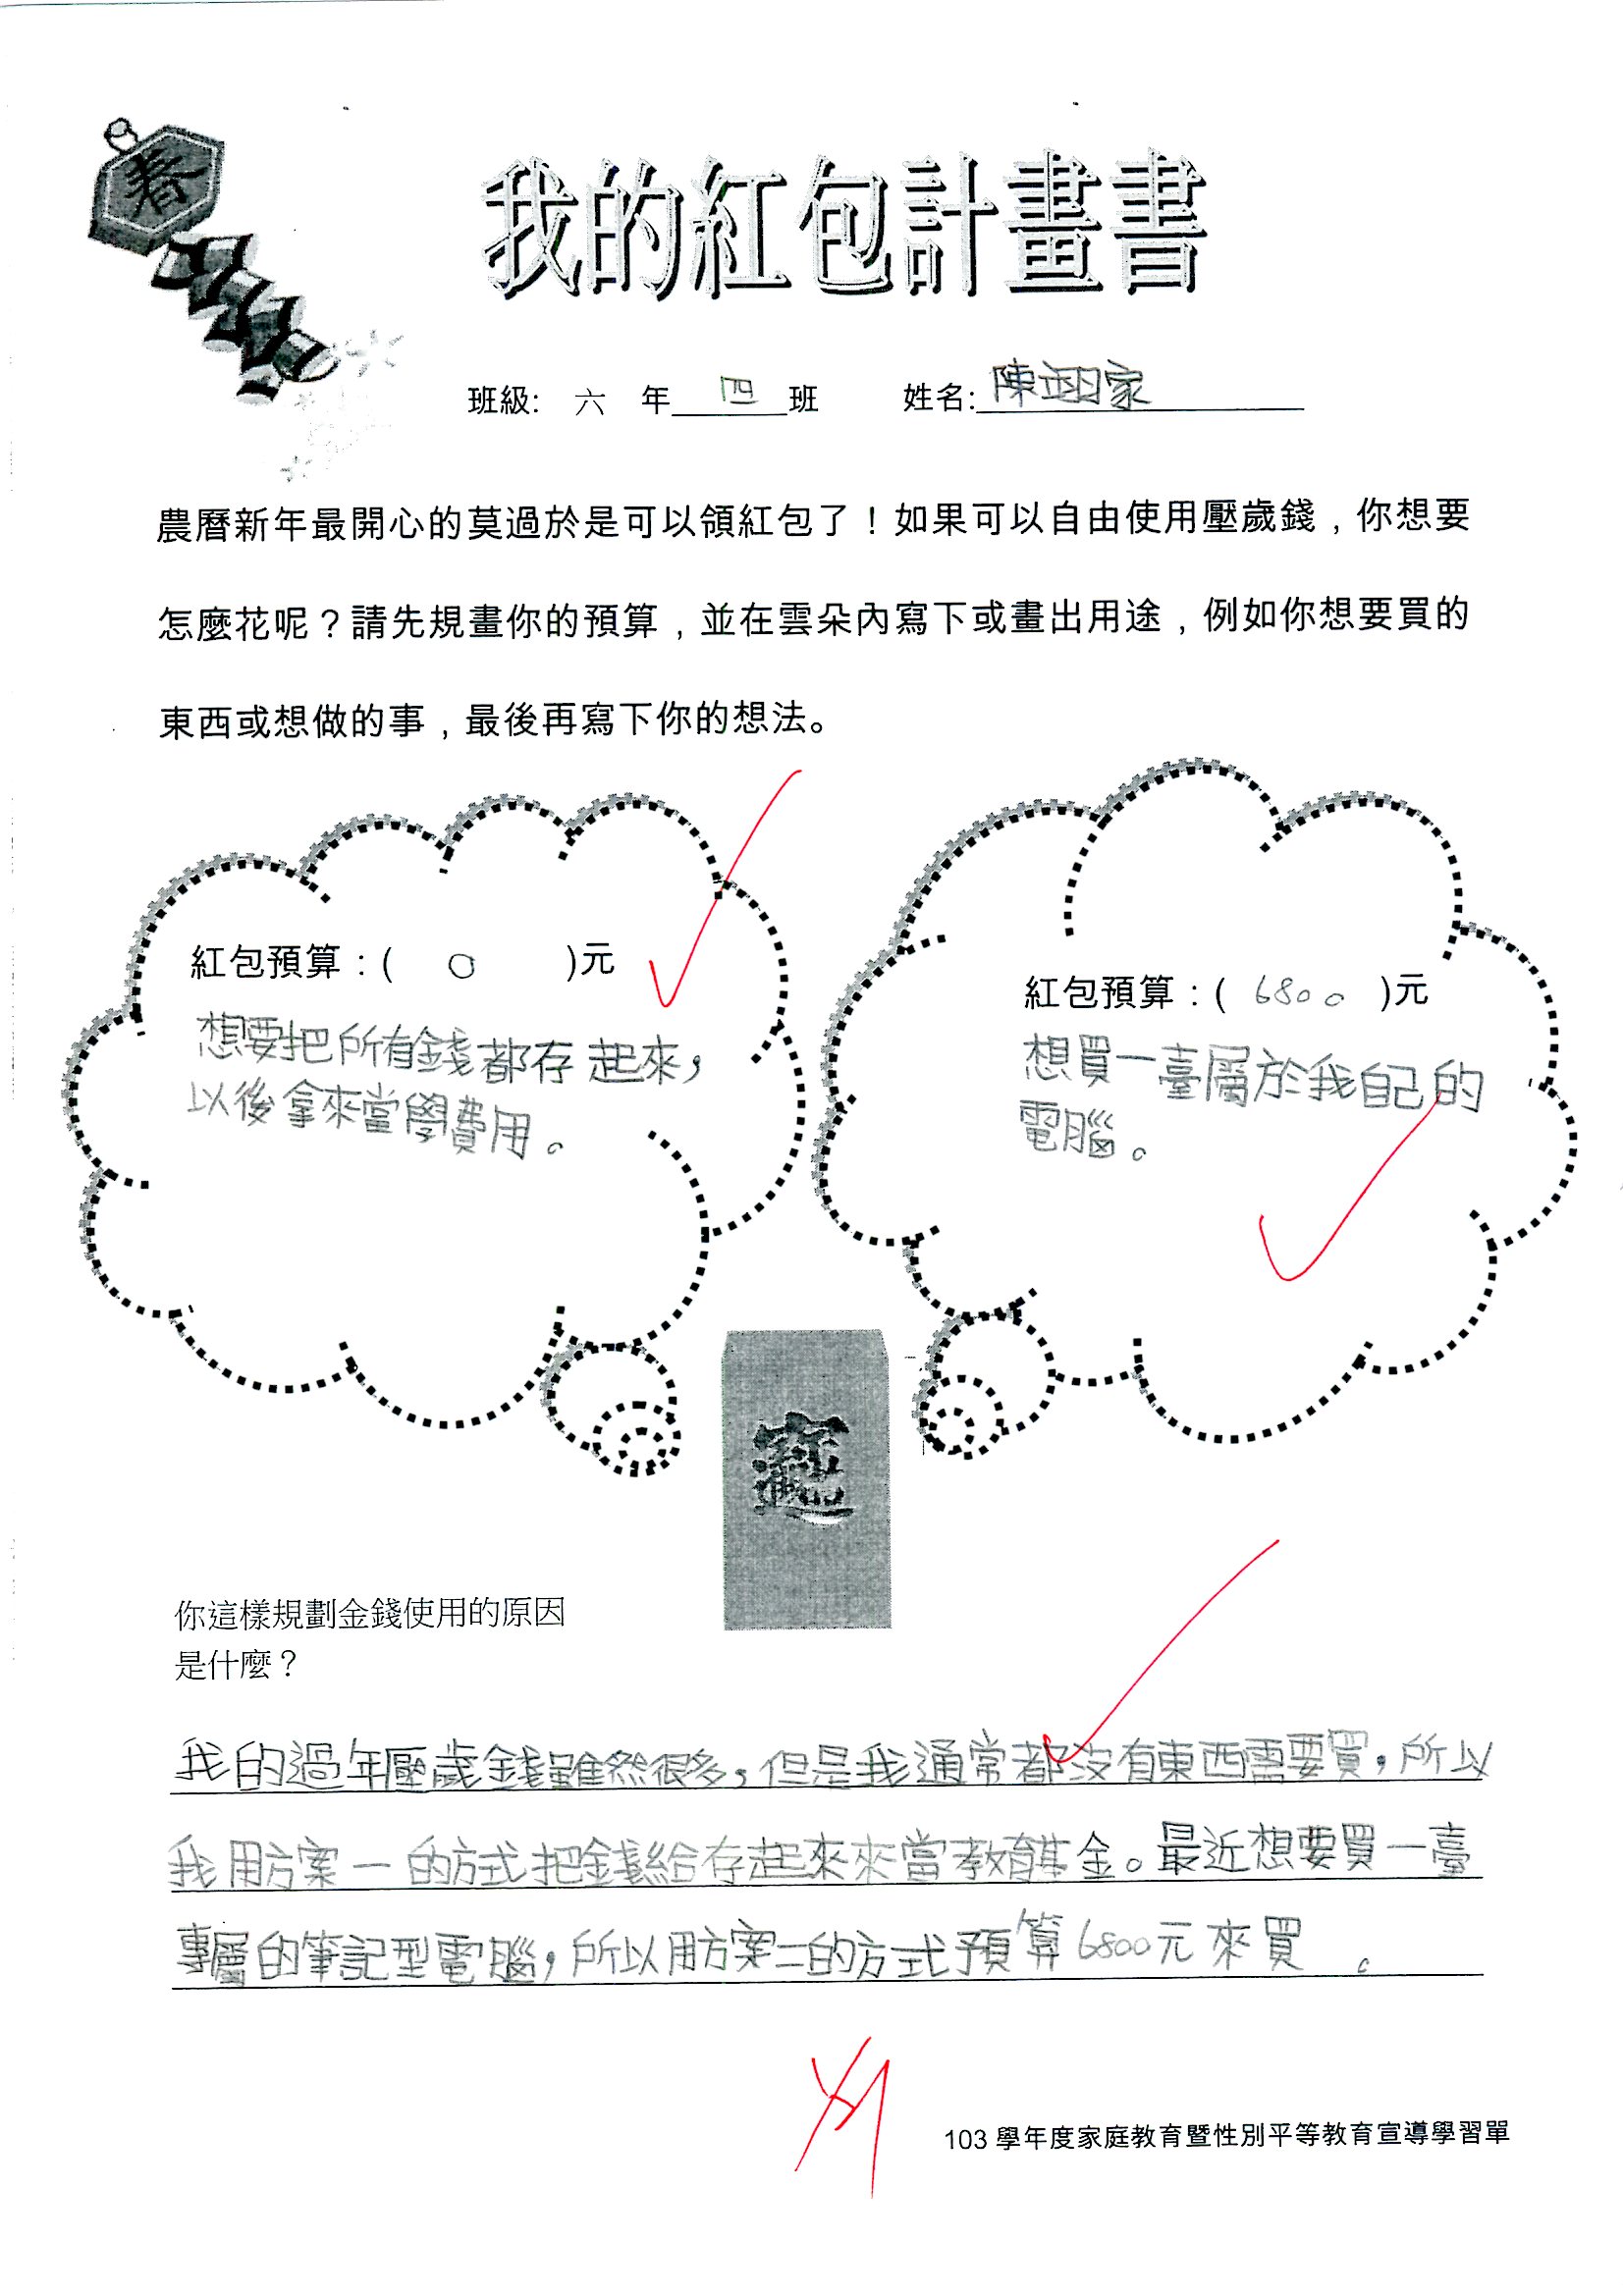 春
我的紅包計畫書
班級: 六 年 四 班 姓名: 陳翊家
農曆新年最開心的莫過於是可以領紅包了！如果可以自由使用壓歲錢，你想要
怎麼花呢？請先規畫你的預算，並在雲朵內寫下或畫出用途，例如你想要買的
東西或想做的事，最後再寫下你的想法。
紅包預算：( 0 )元
想要把所有錢都存起來，
以後拿來當學費用。
紅包預算：( 6800 )元
想買一臺屬於我自己的
電腦。
你這樣規劃金錢使用的原因
是什麼？
我的過年壓歲錢雖然很多，但是我通常都沒有東西需要買，所以
我用方案一的方式把錢給存起來來當教育基金。最近想要買一臺
專屬的筆記型電腦，所以用方案二的方式預算6800元來買。
103 學年度家庭教育暨性別平等教育宣導學習單